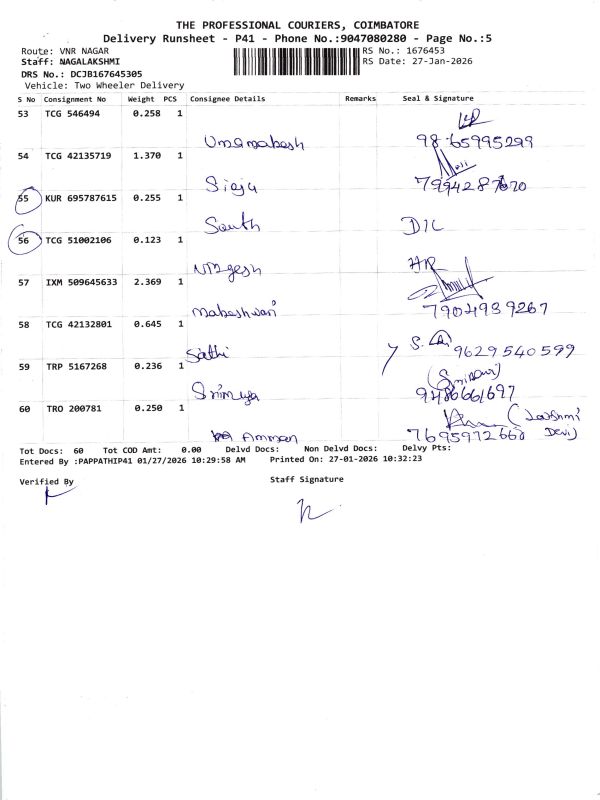 THE PROFESSIONAL COURIERS, COIMBATORE
Delivery Runsheet - P41 - Phone No.:9047080280 - Page No.:5
Route: VNR NAGAR RS No.: 1676453
Staff: NAGALAKSHMI RS Date: 27-Jan-2026
DRS No.: DCJB167645305
Vehicle: Two Wheeler Delivery
S No Consignment No Weight PCS Consignee Details Remarks Seal & Signature
53 TCG 546494 0.258 1
Umamahesh 9865995299
54 TCG 42135719 1.370 1
Siaju
55 KUR 695787615 0.255 1
South DIC
56 TCG 51002106 0.123 1
HR
57 IXM 509645633 2.369 1
Maheshwari 7904939267
58 TCG 42132801 0.645 1
Sathi 9629540599
59 TRP 5167268 0.236 1
9486661697
60 TRO 200781 0.250 1 (Lakshmi
Amman 7695972668 Devi)
Tot Docs: 60 Tot COD Amt: 0.00 Delvd Docs: Non Delvd Docs: Delvy Pts:
Entered By :PAPPATHIP41 01/27/2026 10:29:58 AM Printed On: 27-01-2026 10:32:23
Verified By Staff Signature